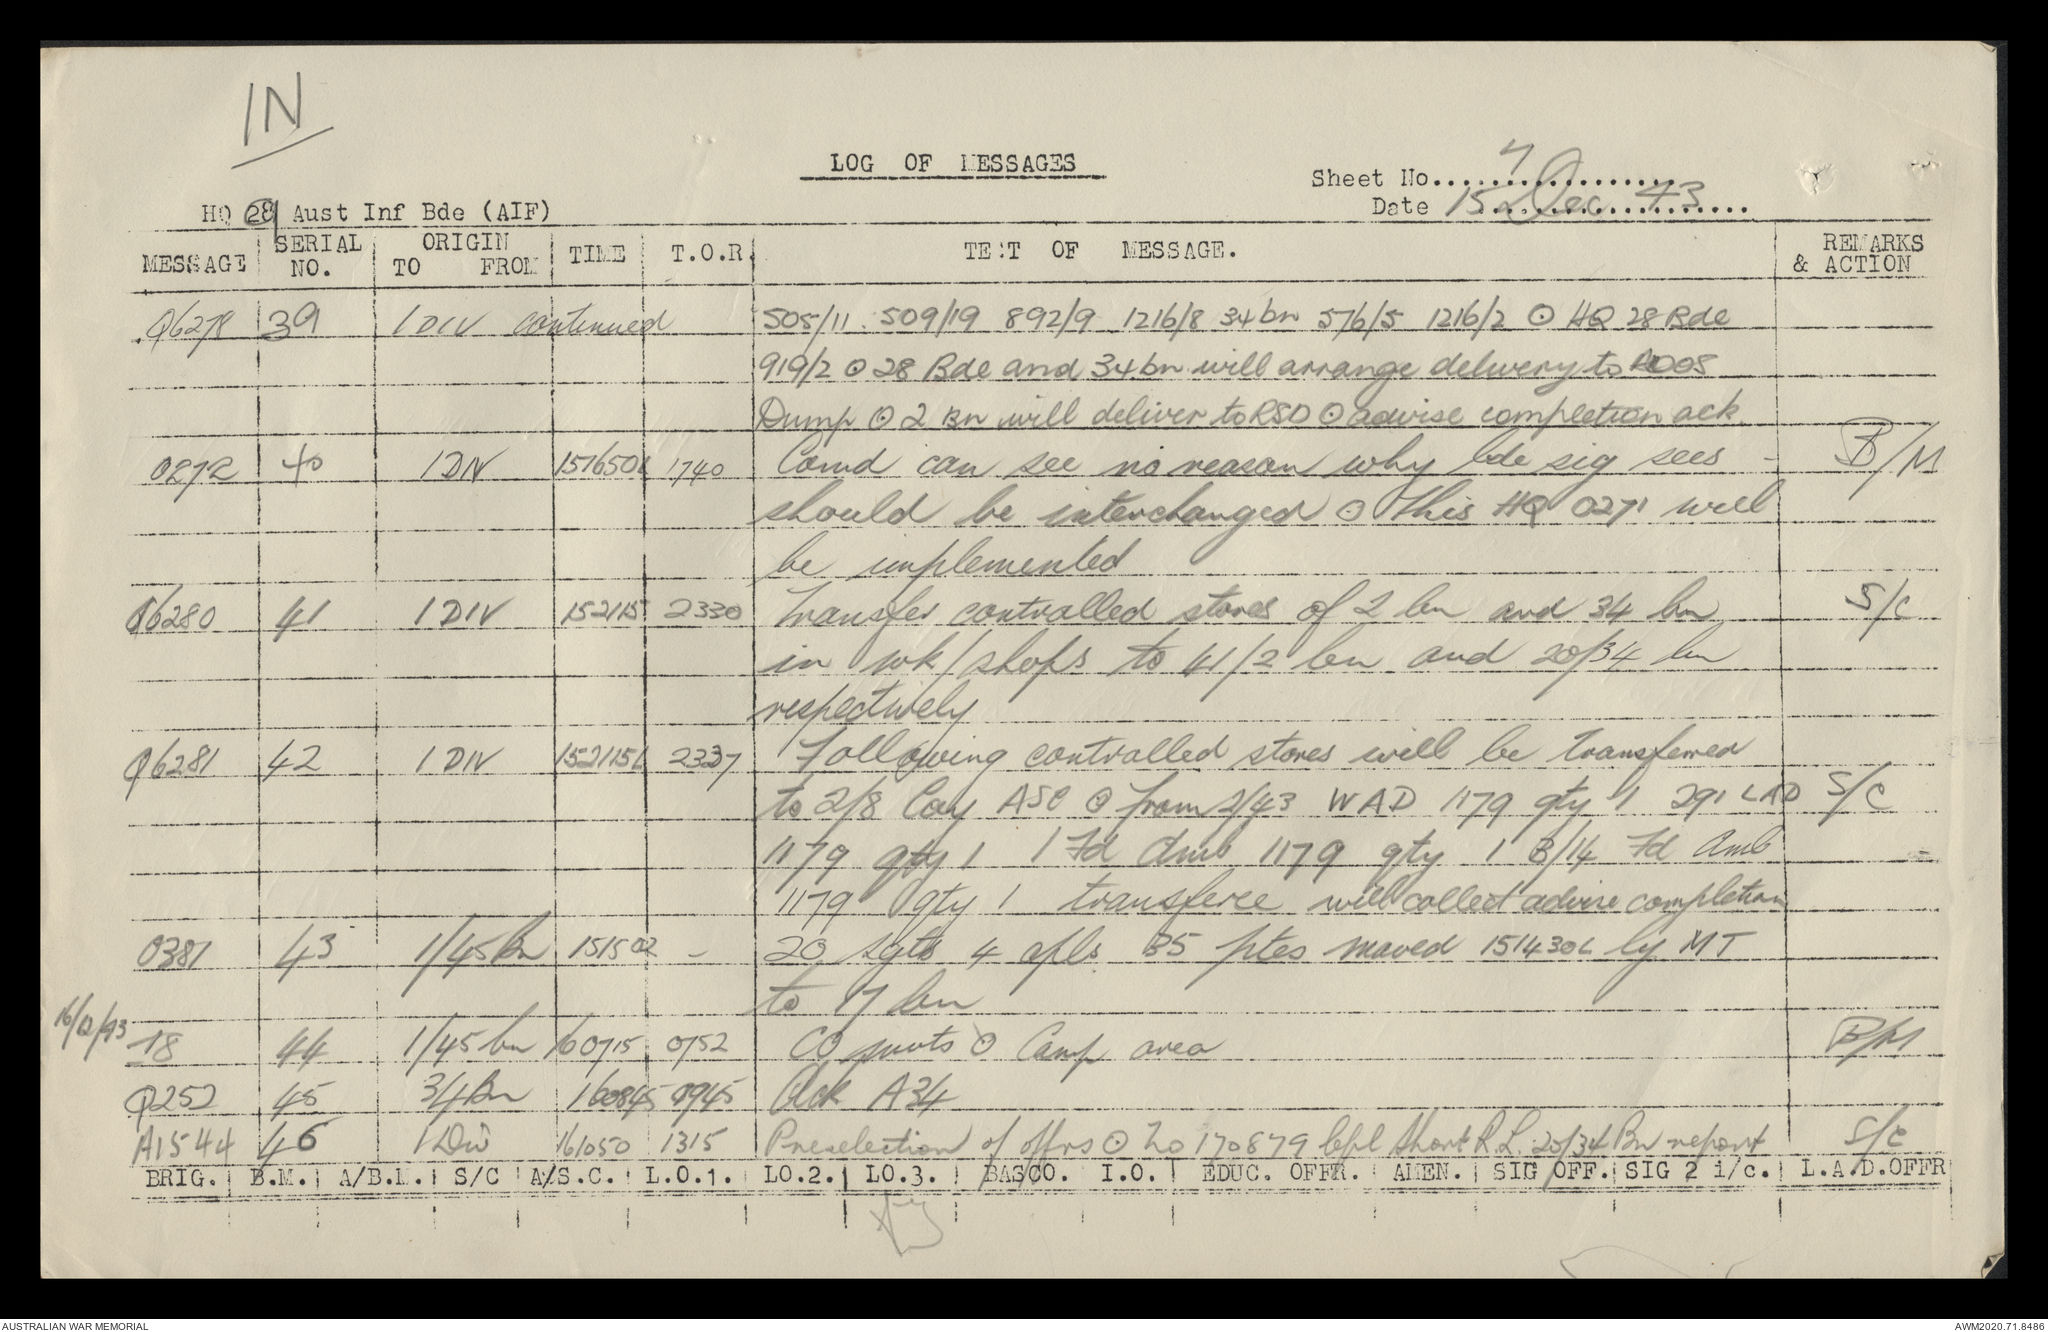 IN
LOG OF MESSAGES
Sheet No. 7
HQ 28 Aust Inf Bde (AIF)
Date 15 Dec 43
MESSAGE | SERIAL NO. | ORIGIN TO FROM | TIME | T.O.R. | TEXT OF MESSAGE. | REMARKS & ACTION
Q6278 39 1 DIV continued 505/11. 509/19 892/9 1216/8 34 bn 576/5 1216/2 ⊙ HQ 28 Bde
919/2 ⊙ 28 Bde and 34 bn will arrange delivery to ADOS
Dump ⊙ 2 Bn will deliver to RSD ⊙ advise completion ack.
0272 40 1 DIV 151650L 1740 Comd can see no reason why bde sig secs - B/M
should be interchanged ⊙ This HQ 0271 will
be implemented
Q6280 41 1 DIV 152115 2330 Transfer controlled stores of 2 bn and 34 bn S/C
in wk/shops to 41/2 bn and 20/34 bn
respectively
Q6281 42 1 DIV 152115L 2337 Following controlled stores will be transferred
to 2/8 Coy ASC ⊙ from 2/43 WAD 1179 qty 1 291 LAD S/C
1179 qty 1 1 Fd Amb 1179 qty 1 B/14 Fd Amb
1179 qty 1 transferee will collect advise completion
0381 43 1/45 Bn 151502 - 20 sgts 4 cpls 35 ptes moved 151430L by MT
to 17 bn
16/12/43
18 44 1/45 bn 160715 0752 CO ⊙ Camp area B/M
Q252 45 34 Bn 160845 0945 Ack A34
A1544 46 1 Div 161050 1315 Preselection of offrs ⊙ 170879 Cpl Short R.L. 20/34 Bn report S/C
BRIG. | B.M. | A/B.M. | S/C | A/S.C. | L.O.1. | LO.2. | LO.3. | BASCO. | I.O. | EDUC. OFFR. | AMEN. | SIG OFF. | SIG 2 i/c. | L.A.D.OFFR
AUSTRALIAN WAR MEMORIAL
AWM2020.71.8486